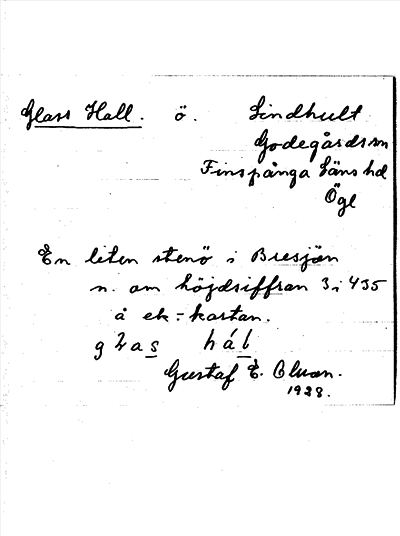 Glass Hall. ö. Lindhult
Godegårds sn
Finspånga Läns hd
Ögl
En liten stenö i Bresjön
n. om höjdsiffran 3 i 435
å ek:-kartan.
g a s hál
Gustaf E. Olson.
1928.